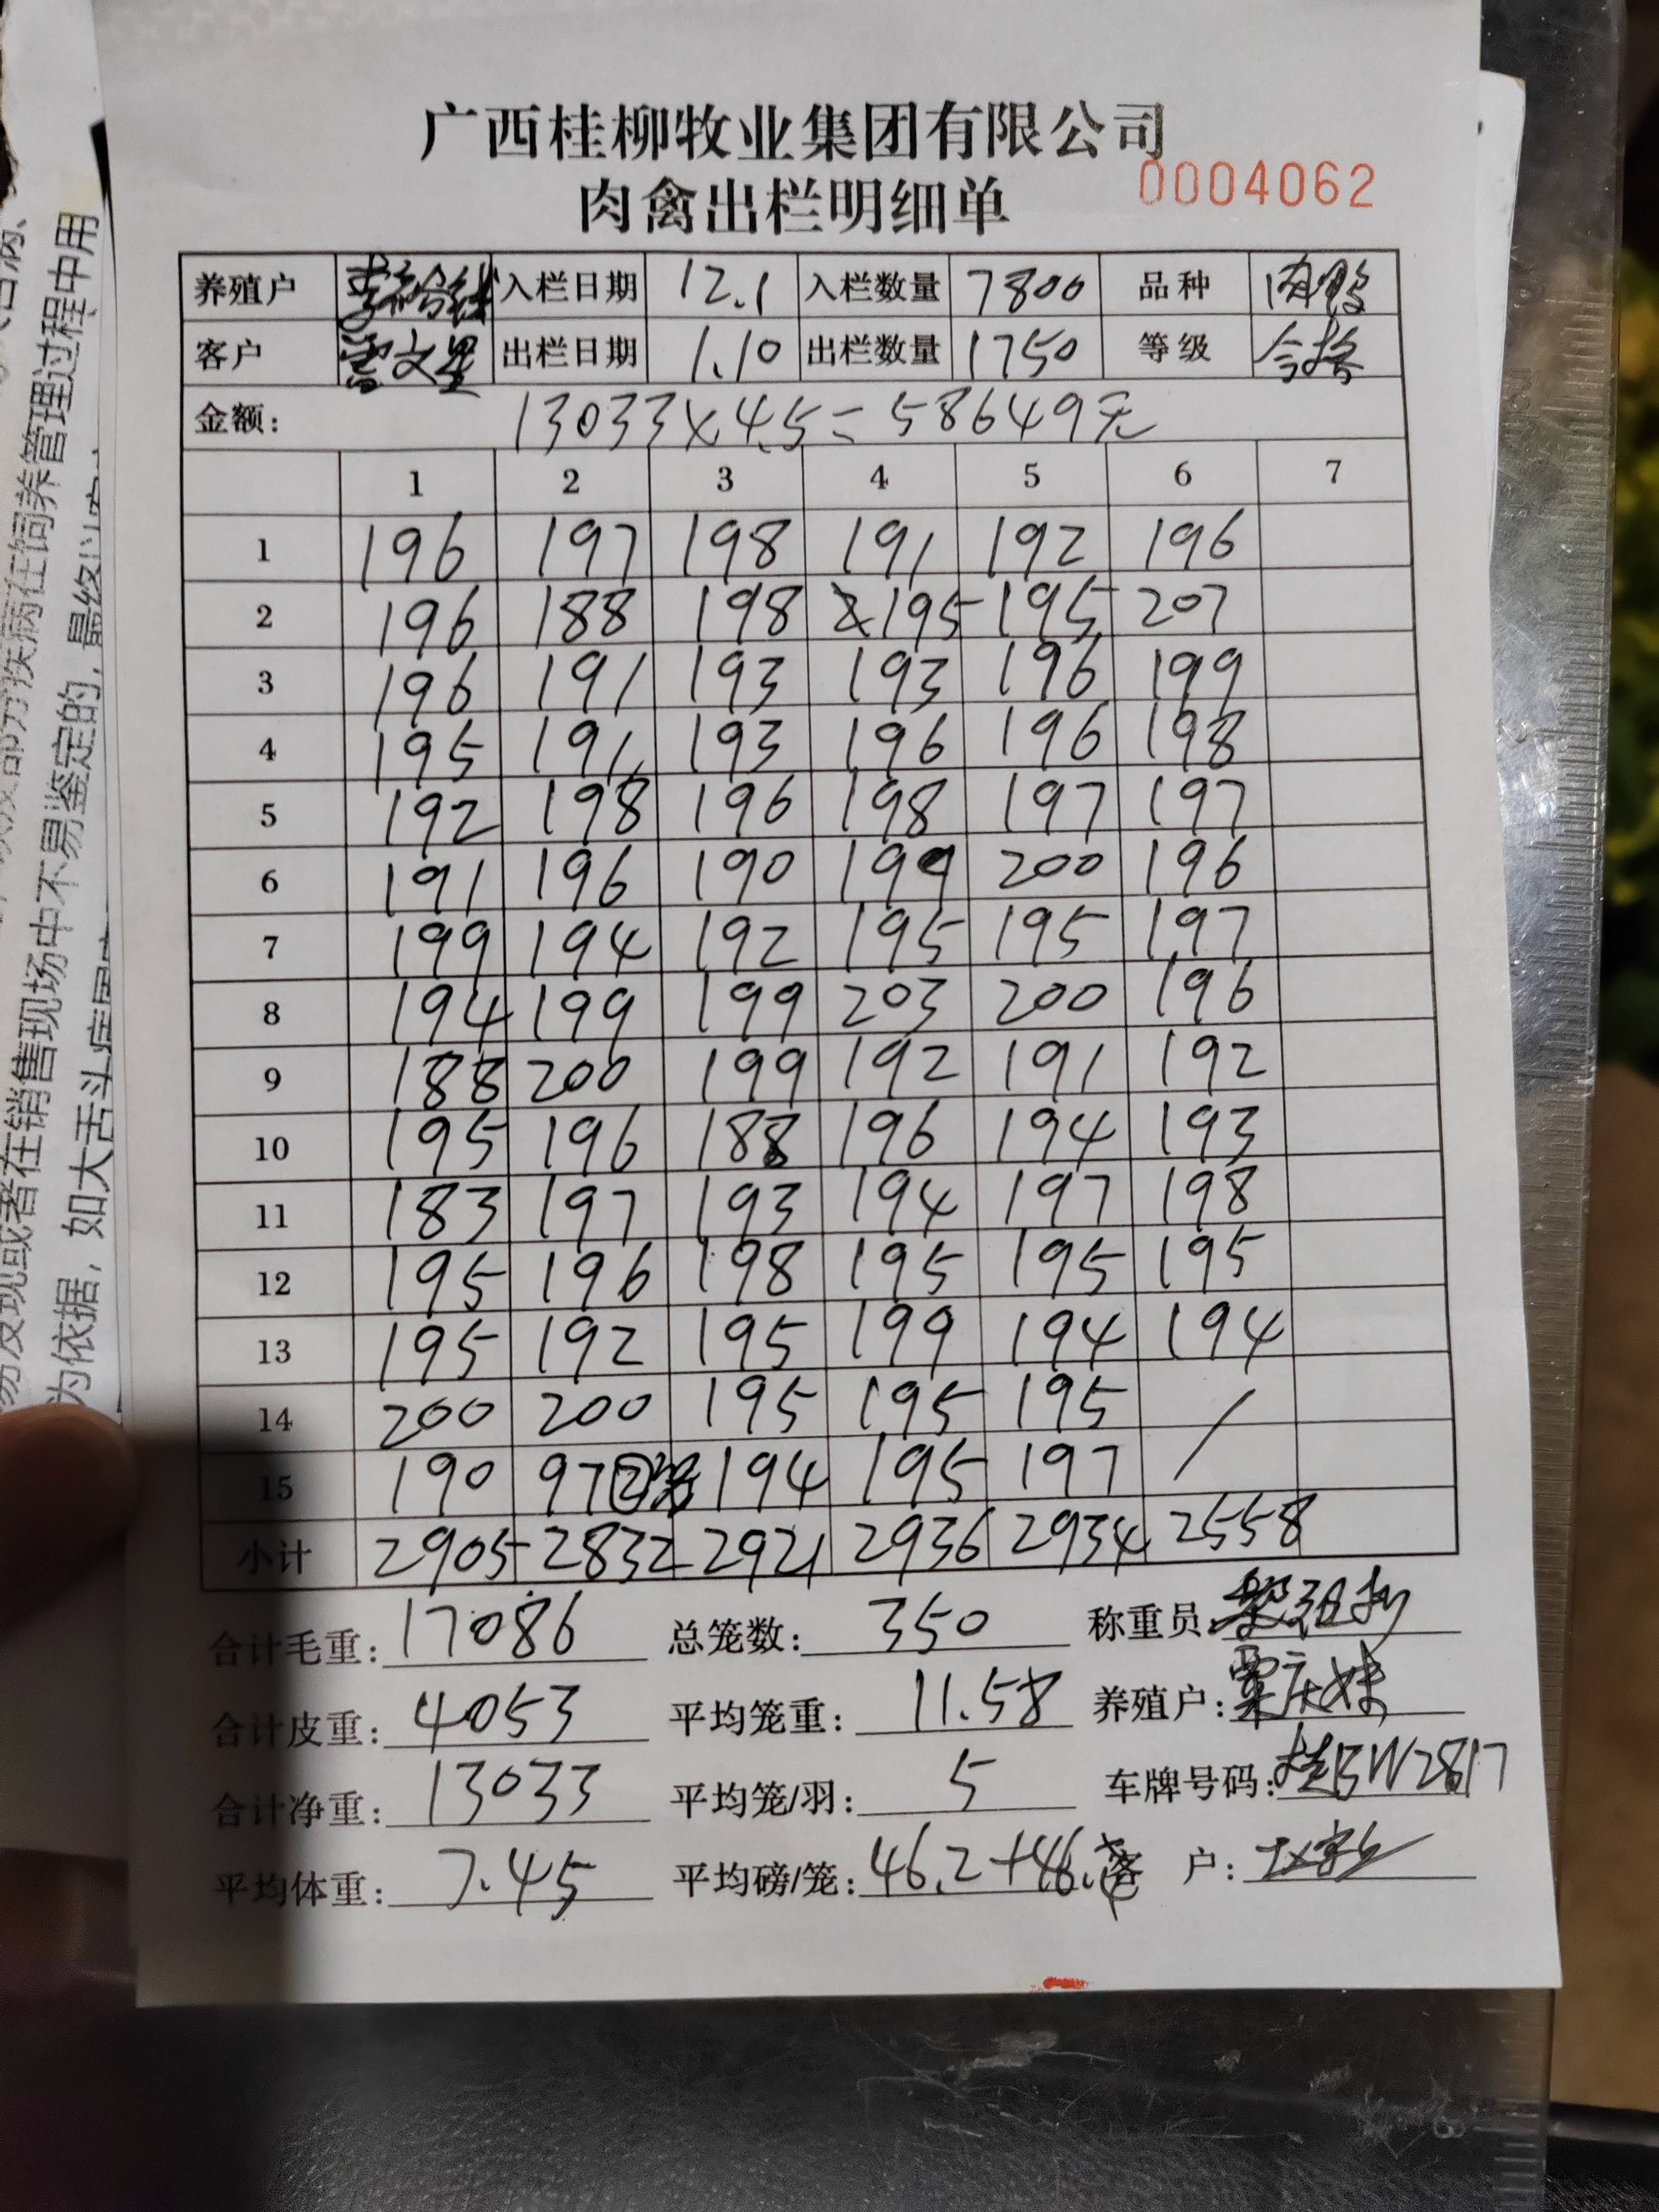 广西桂柳牧业集团有限公司
肉禽出栏明细单 0004062
养殖户 入栏日期 12.1 入栏数量 7800 品种 肉鸭
客户 出栏日期 1.10 出栏数量 1750 等级 合格
金额: 13033×4.5=58649元
1 2 3 4 5 6 7
1 196 197 198 191 192 196
2 196 188 198 195 195 207
3 196 191 193 193 196 199
4 195 191 193 196 196 198
5 192 198 196 198 197 197
6 191 196 190 199 200 196
7 199 194 192 195 195 197
8 194 199 199 203 200 196
9 188 200 199 192 191 192
10 195 196 188 196 194 193
11 183 197 193 194 197 198
12 195 196 198 195 195 195
13 195 192 195 199 194 194
14 200 200 195 195 195 /
15 190 97②笼 194 195 197 /
小计 2905 2832 2921 2936 2934 2558
合计毛重: 17086 总笼数: 350 称重员:
合计皮重: 4053 平均笼重: 11.58 养殖户: 覃庆妹
合计净重: 13033 平均笼/羽: 5 车牌号码: 桂BW2817
平均体重: 7.45 平均磅/笼: 46.2+46. 客 户:
为依据，如大舌头
易发现或者在销售现场中不易鉴定的，最终以
疾病在饲养管理过程中用